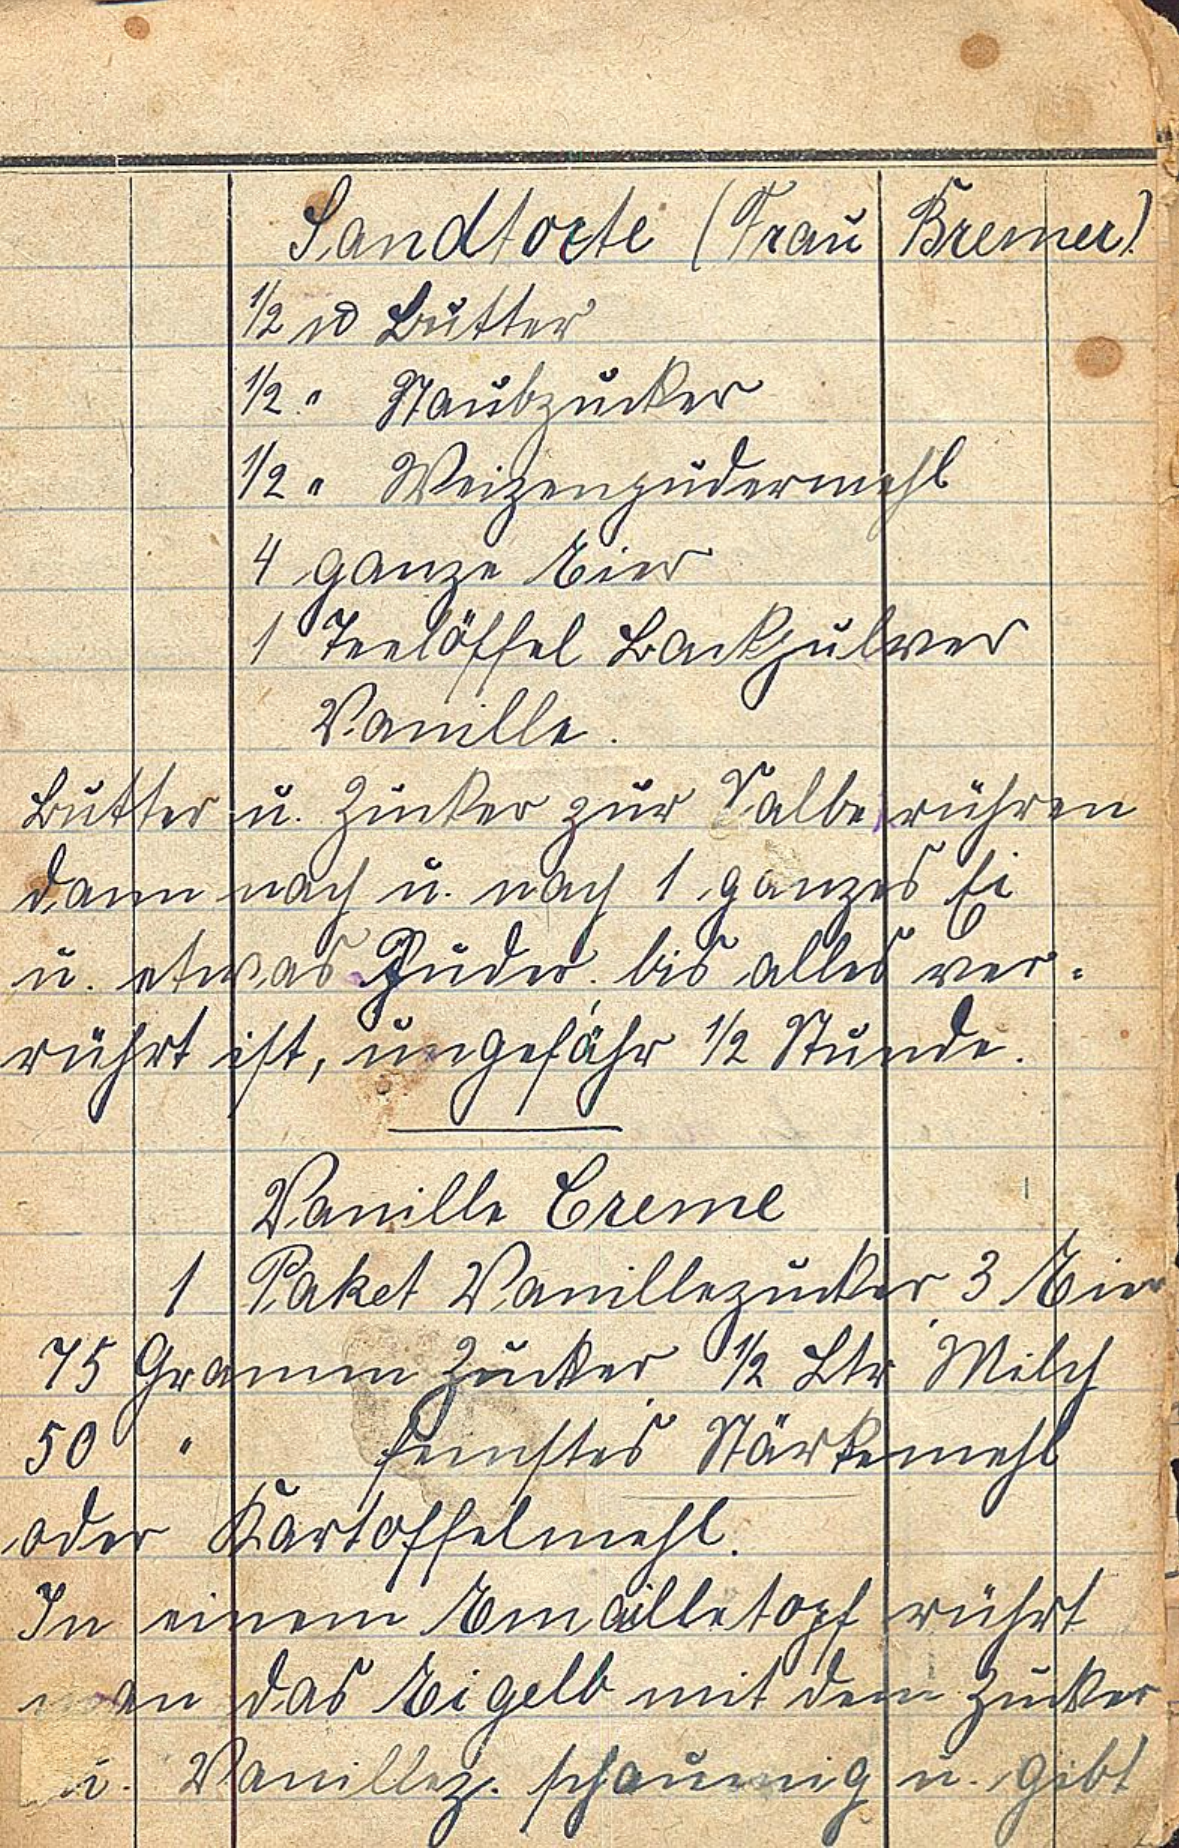 Sandtorte (Frau Bremer)
1/2 ℔ Butter
1/2 " Staubzucker
1/2 " Weizenpudermehl
4 ganze Eier
1 Teelöffel Backpulver
Vanille.
Butter u. Zucker zur Salbe rühren
dann nach u. nach 1 ganzes Ei
u. etwas Puder bis alles ver-
rührt ist, ungefähr 1/2 Stunde.
Vanille Creme
1 Paket Vanillezucker 3 Eier
75 Gramm Zucker 1/2 Ltr Milch
50 " feinstes Stärkemehl
oder Kartoffelmehl.
In einem Emailletopf rührt
man das Eigelb mit dem Zucker
u. Vanillez. schaumig u. gibt